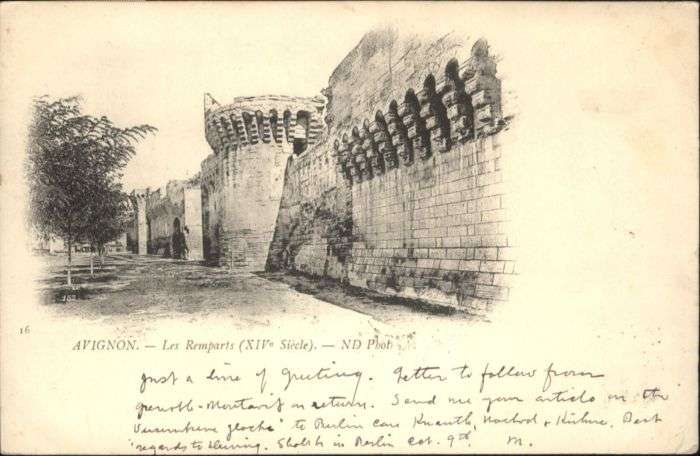 16
AVIGNON. — Les Remparts (XIVe Siècle). — ND Phot
Just a line of Greeting. Letter to follow from
on return. Send me your article on the
to Berlin care Knauth, Nachod & Kühne. Best
regards to in Berlin Oct. 9th. M.